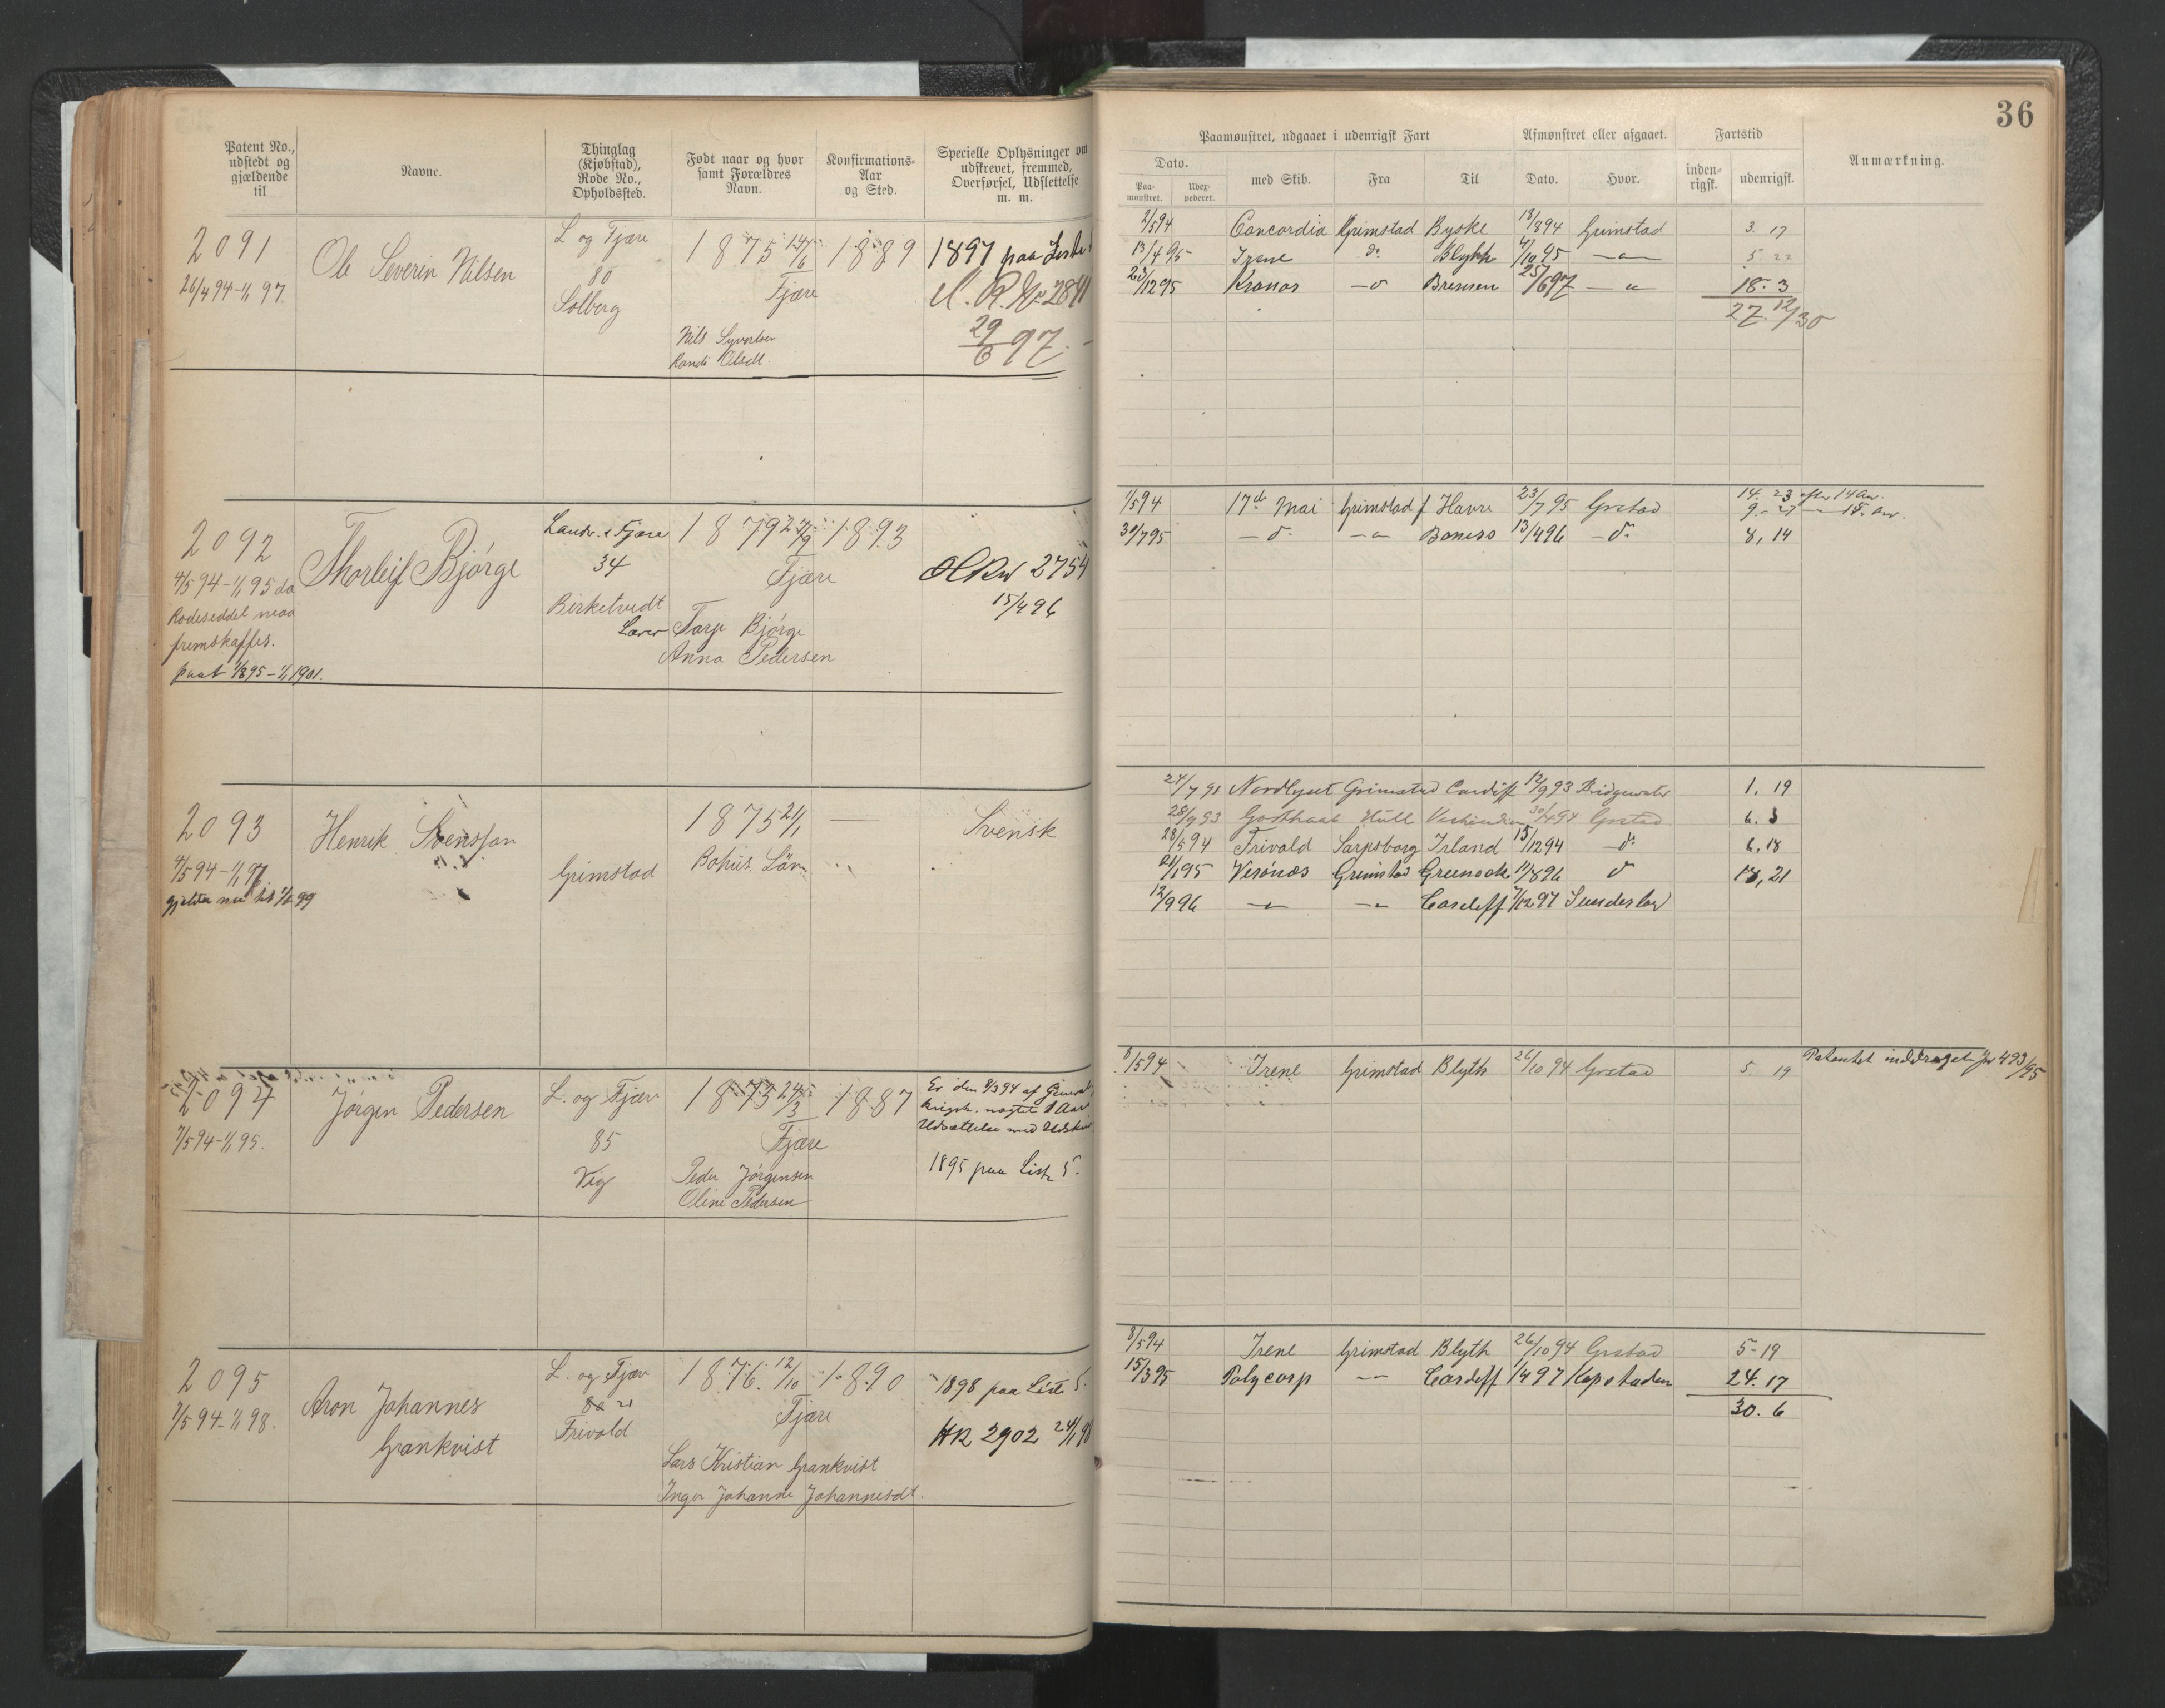 36
Patent No., udstedt og gjældende til
Navne.
Thinglag (Kjøbstad), Rode No., Opholdssted.
Født naar og hvor samt Forældres Navn.
Konfirmations-Aar og Sted.
Specielle Oplysninger om udskrevet, fremmed, Overførsel, Udslettelse m. m.
Paamønstret, udgaaet i udenrigsk Fart
Afmønstret eller afgaaet.
Fartstid
Anmærkning.
Dato.
Paa-mønstret.
Udex-pederet.
med Skib.
Fra
Til
Dato.
Hvor.
inden-rigsk.
udenrigsk.
2091
26/4 94 - 1/1 97.
Ole Severin Nilsen
L og Fjære
80
Solberg
1875 14/6
Fjære
Nils Syvertsen
Randi Olsdt.
1889
1897 paa Liste
29/6 97.
2/5 94 Concordia Grimstad Byske 18/8 94 Grimstad 3. 17
13/4 95 Irene do Blyth 4/10 95 — " — 5. 22
23/12 95 Kronos — " Bremen 25/6 97 — " 18. 3
27. 12/30
2092
4/5 94 - 1/1 95 da
Rodeseddel maa
fremskaffes.
1/8 95 - 1/1 1901.
Thorleif Bjørge
Landv. & Fjære
34
Birketvedt
Lærer
1879 27/9
Fjære
Tarje Bjørge
Anna Pedersen
1893
2754
15/4 96
1/5 94 17de Mai Grimstad f Havre 23/7 95 Grstad 14. 23 efter 14 Aar.
9. 27 — 15. Aar.
30/7 95 — do — " Boness 13/4 96 — do 8, 14
2093
4/5 94 - 1/1 97.
gjelder nu til 1/1 99
Henrik Svensson
Grimstad
1875 21/1
Bohus Län
—
Svensk
24/7 91 Nordlyset Grimstad Cardiff 12/9 93 Bridgewater 1. 19
28/9 93 Godthaab Hull 30/4 94 Grstad 6. 3
28/5 94 Frivold Sarpsborg Irland 15/12 94 — do 6, 18
21/1 95 Verónos Grimstad Greenock 11/8 96 do 18, 21
12/9 96 — " — " Cardiff 7/12 97 Sunderland
2094
7/5 94 - 1/1 95.
Jørgen Pedersen
L. og Fjære
85
Vig
1873 24/3
Fjære
Peder Jørgensen
Oline Pedersen
1887
Er den 8/3 94 af General
krigsk. nægtet 1 Aars
Udsættelse med Udskriv
1895 paa Liste 5.
8/5 94 Irene Grimstad Blyth 26/10 94 Grstad 5. 19 Patentet inddraget Jr 493/95
2095
7/5 94 - 1/1 98.
Aron Johannes
Grankvist
L. og Fjære
21
Frivold
1876. 12/10
Fjære
Lars Kristian Grankvist
Inger Johanne Johannesdt.
1890
1898 paa Liste 5.
HR 2902 24/1 98
8/5 94 Irene Grimstad Blyth 26/10 94 Grstad 5 - 19
15/3 95 Polycarp — " Cardiff 1/4 97 Kapstaden 24. 17
30. 6